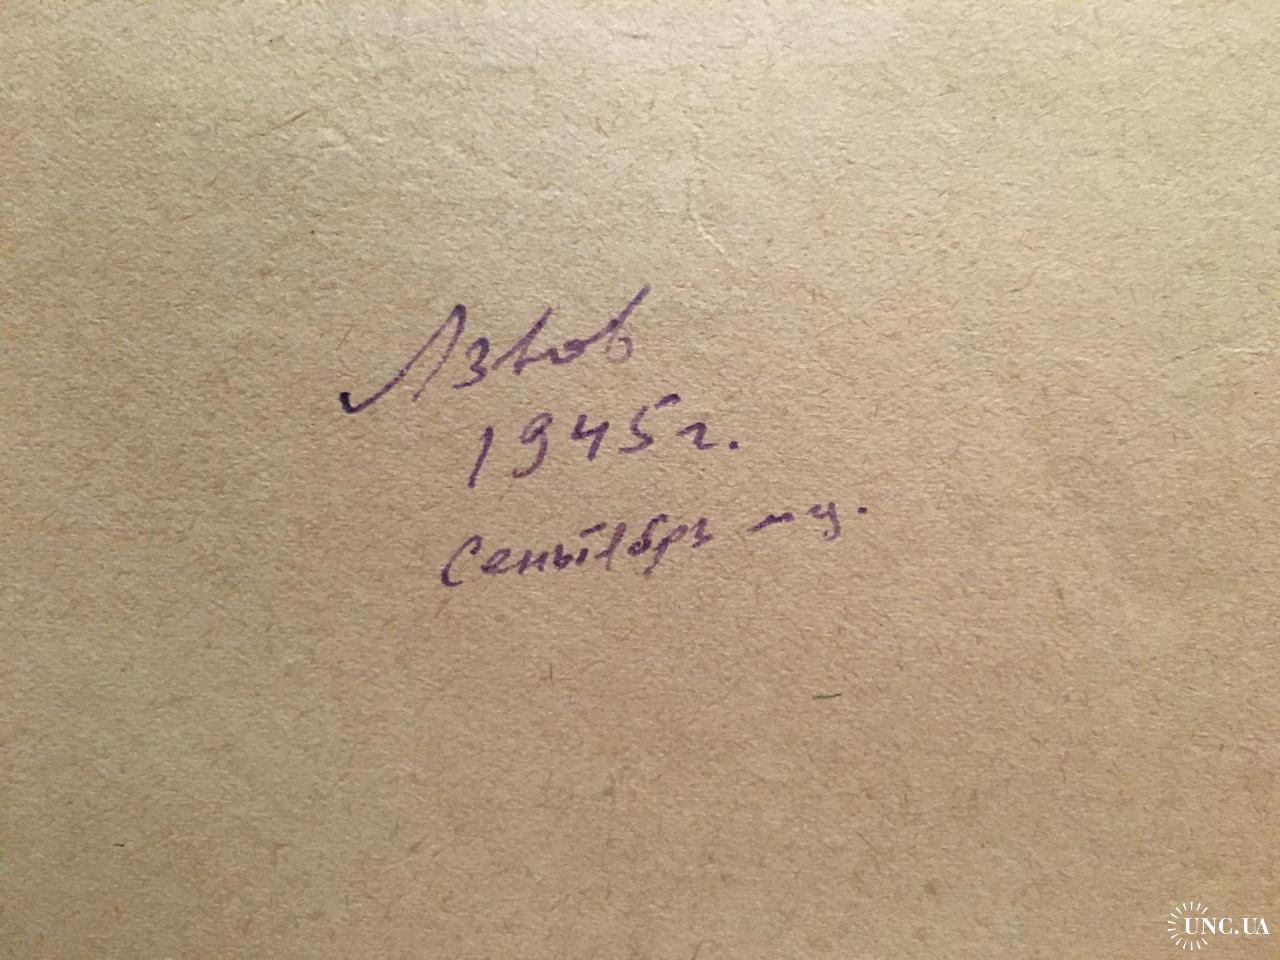 Азов
1945 г.
Сентябрь м-ц.
UNC.UA